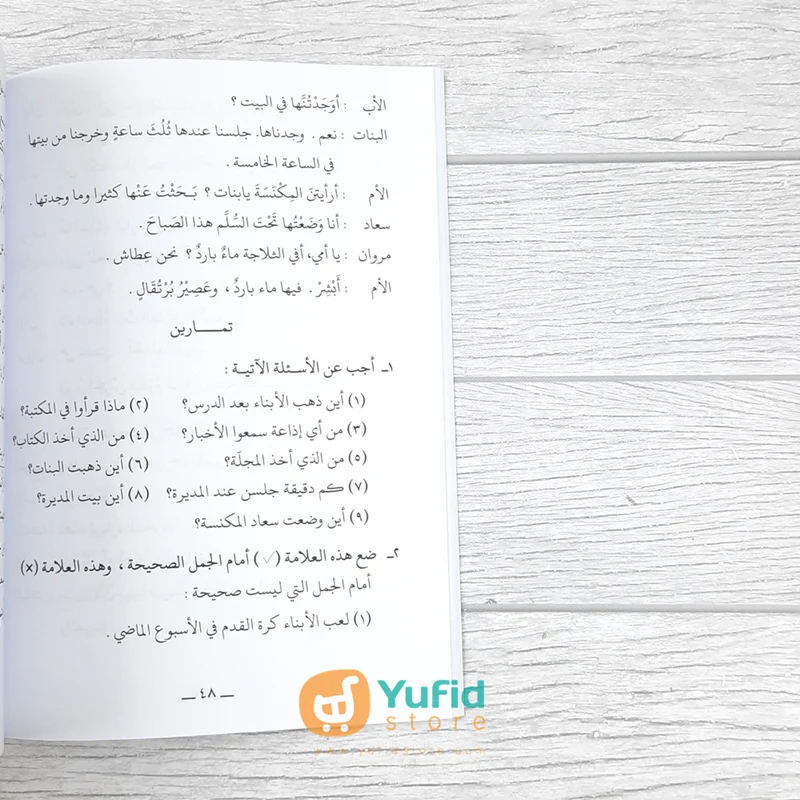 الأب : أوَجَدْتُنَّها في البيت ؟
البنات : نعم . وجدناها. جلسنا عندها ثُلُثَ ساعةٍ وخرجنا من بيتها
في الساعة الخامسة .
الأم : أرأيتنّ المِكْنَسَةَ يابنات ؟ بَـحَثْتُ عَنْها كثيرا وما وجدتها .
سعاد : أنا وَضَعْتُها تَحْتَ السُّلَّم هذا الصَباحَ .
مروان : يا أمي، أفي الثلاجة ماءٌ باردٌ ؟ نحن عِطاش .
الأم : أَبْشِرْ . فيها ماء باردٌ ، وعَصِيْرُ بُرْتُقَالٍ .
تمـــارين
١ـ أجب عن الأسـئلة الآتيـة :
(١) أين ذهب الأبناء بعد الدرس؟ (٢) ماذا قرأوا في المكتبة؟
(٣) من أي إذاعة سمعوا الأخبار؟ (٤) من الذي أخذ الكتاب؟
(٥) من الذي أخذ المجلّة؟ (٦) أين ذهبت البنات؟
(٧) كم دقيقة جلسن عند المديرة؟ (٨) أين بيت المديرة؟
(٩) أين وضعت سعاد المكنسة؟
٢ـ ضع هذه العلامة (✓) أمام الجمل الصحيحة ، وهذه العلامة (×)
أمام الجمل التي ليست صحيحة :
(١) لعب الأبناء كرة القدم في الأسبوع الماضي .
ــ ٤٨ ــ
Yufid
store